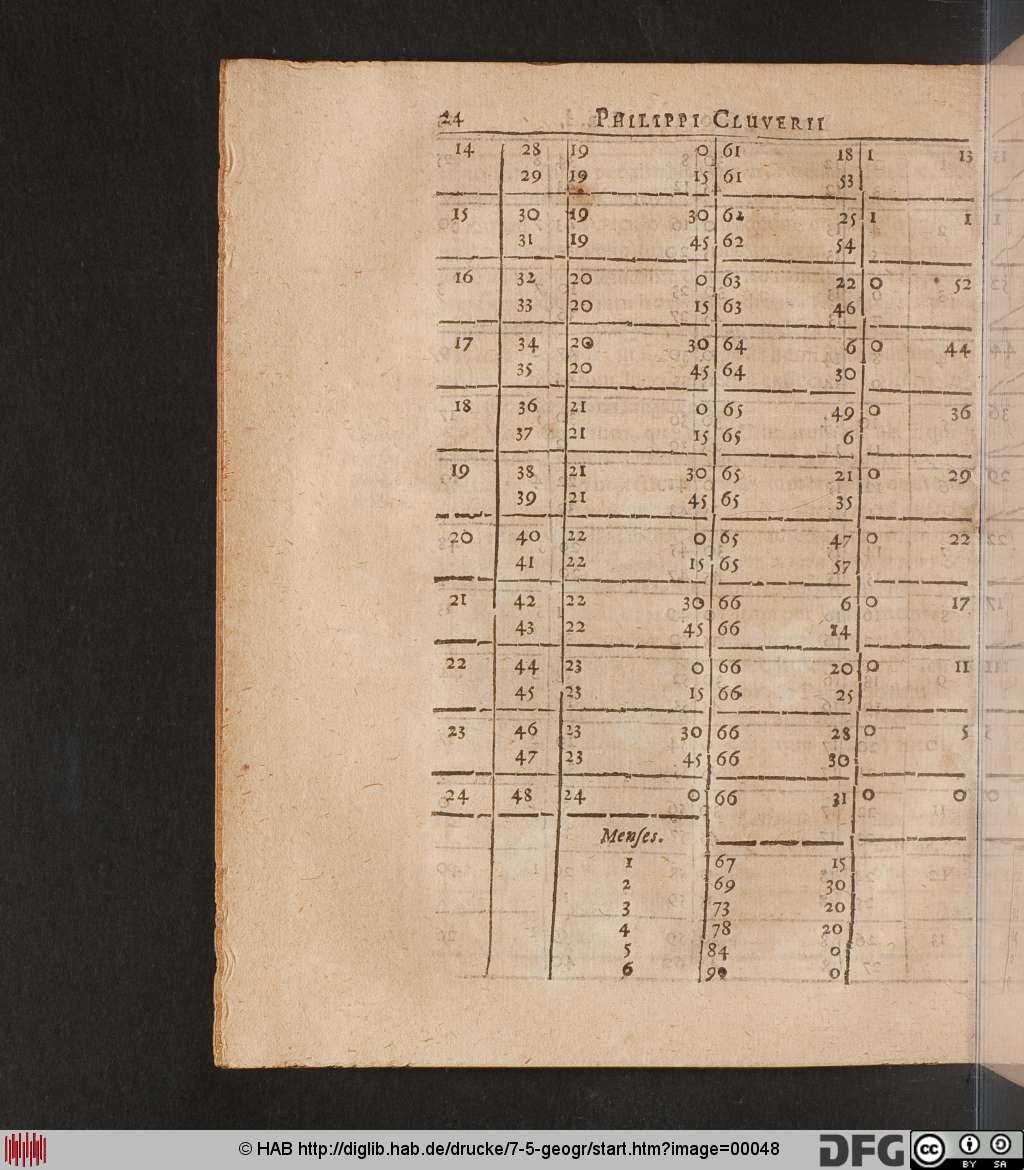 24 PHILIPPI CLUVERII
14 28 19 0 61 18 1 13
29 19 15 61 53
15 30 19 30 62 25 1 1
31 19 45 62 54
16 32 20 0 63 22 0 52
33 20 15 63 46
17 34 20 30 64 6 0 44
35 20 45 64 30
18 36 21 0 65 49 0 36
37 21 15 65 6
19 38 21 30 65 21 0 29
39 21 45 65 35
20 40 22 0 65 47 0 22
41 22 15 65 57
21 42 22 30 66 6 0 17
43 22 45 66 14
22 44 23 0 66 20 0 11
45 23 15 66 25
23 46 23 30 66 28 0 5
47 23 45 66 30
24 48 24 0 66 31 0 0
Menſes.
1 67 15
2 69 30
3 73 20
4 78 20
5 84 0
6 90 0
© HAB http://diglib.hab.de/drucke/7-5-geogr/start.htm?image=00048
DFG cc BY SA